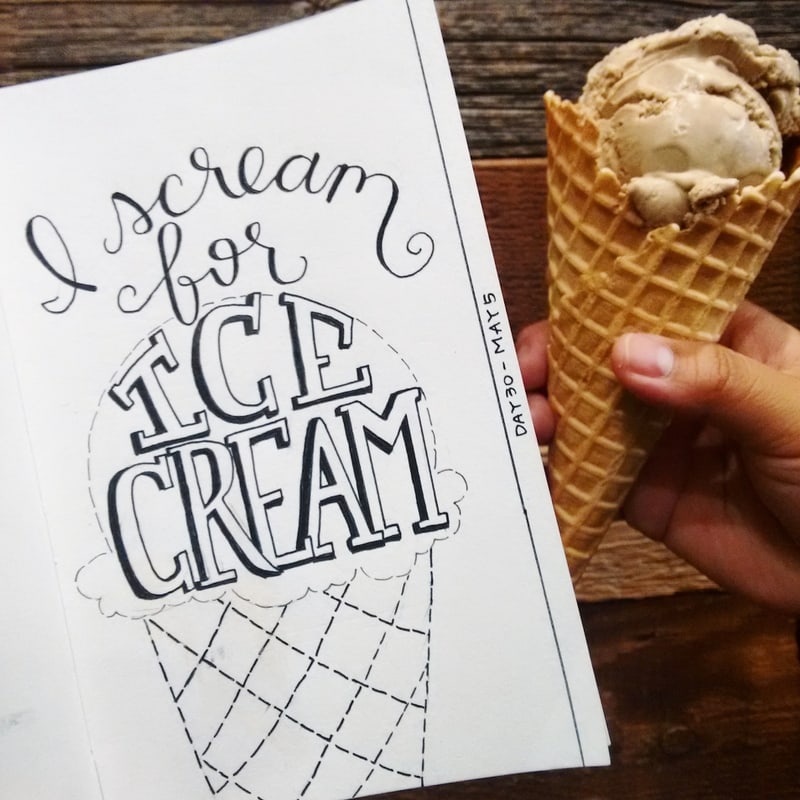 I scream
for
ICE
CREAM
DAY 30 - MAY 5